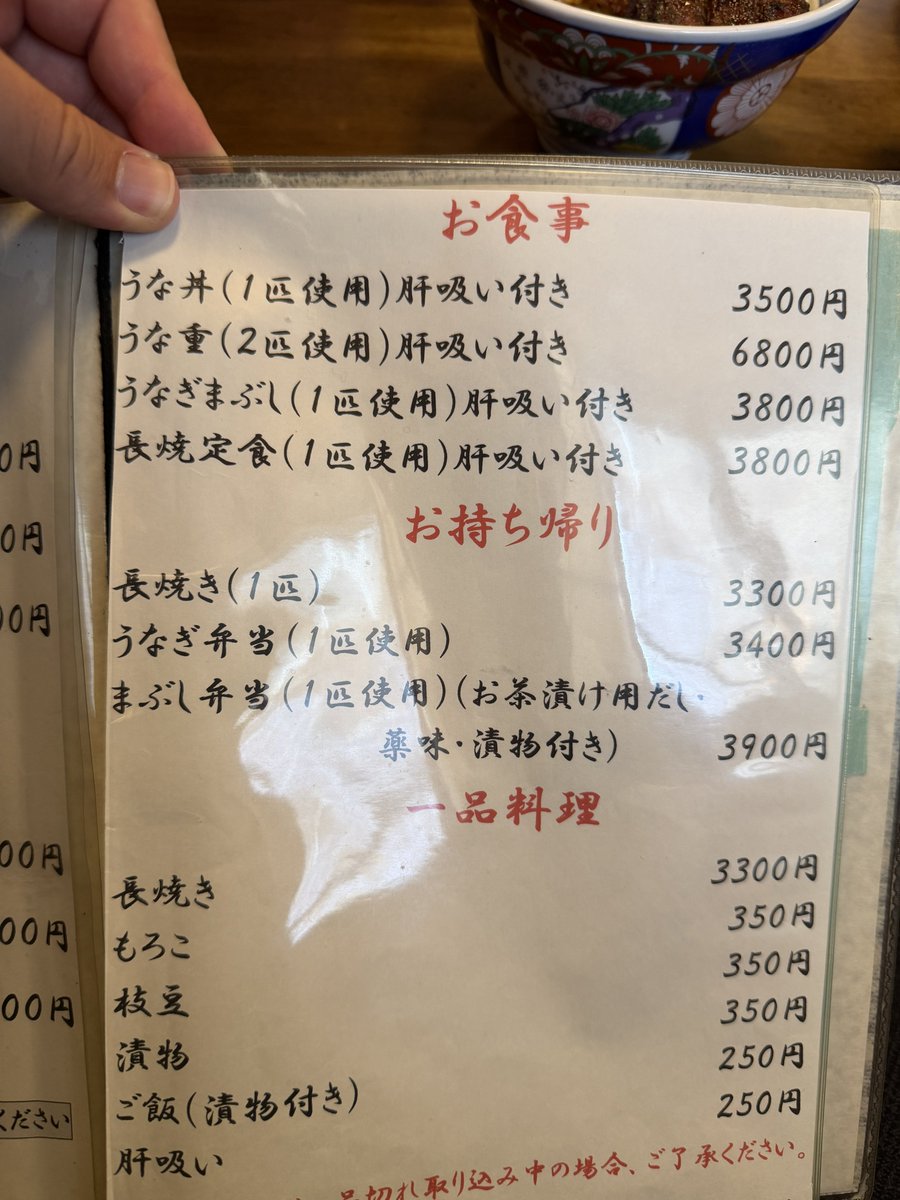 お食事
うな丼(1匹使用)肝吸い付き 3500円
うな重(2匹使用)肝吸い付き 6800円
うなぎまぶし(1匹使用)肝吸い付き 3800円
長焼定食(1匹使用)肝吸い付き 3800円
お持ち帰り
長焼き(1匹) 3300円
うなぎ弁当(1匹使用) 3400円
まぶし弁当(1匹使用)(お茶漬け用だし・
薬味・漬物付き) 3900円
一品料理
長焼き 3300円
もろこ 350円
枝豆 350円
漬物 350円
ご飯(漬物付き) 250円
肝吸い 250円
品切れ取り込み中の場合、ご了承ください。
0円
0円
00円
00円
00円
00円
ください